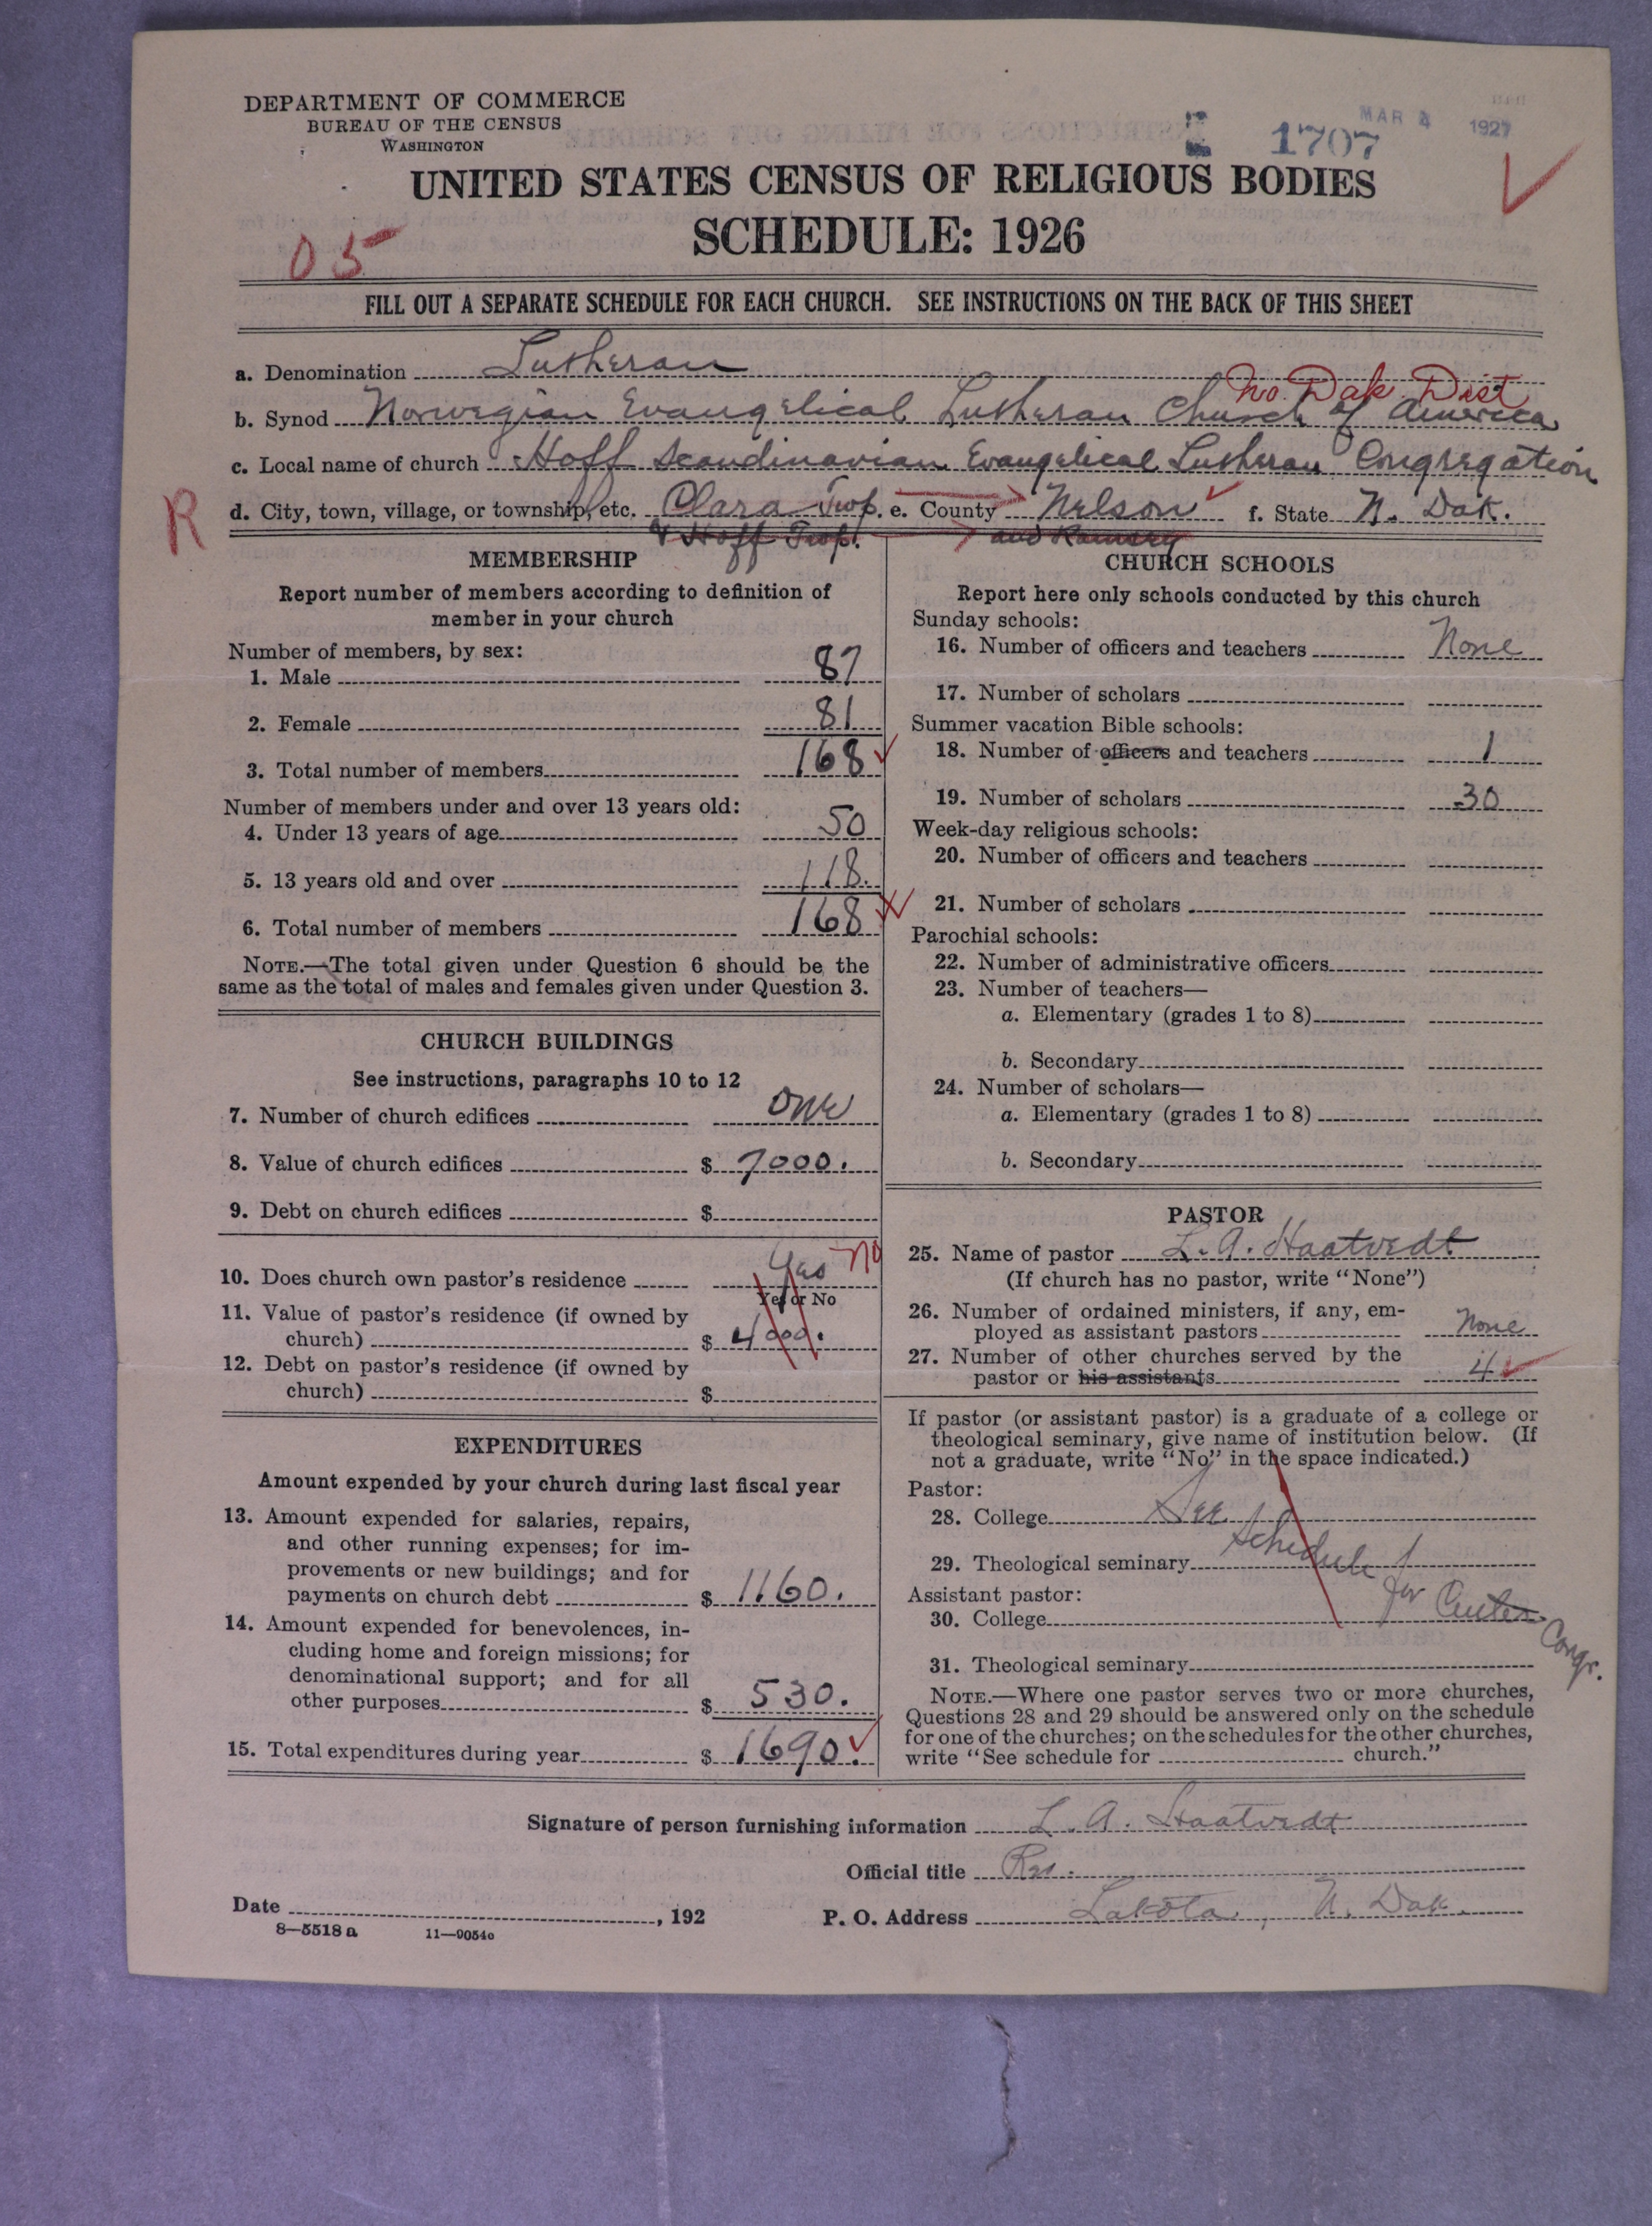 DEPARTMENT OF COMMERCE
BUREAU OF THE CENSUS
WASHINGTON
1707
MAR 4 1927
UNITED STATES CENSUS OF RELIGIOUS BODIES
SCHEDULE: 1926
05
FILL OUT A SEPARATE SCHEDULE FOR EACH CHURCH. SEE INSTRUCTIONS ON THE BACK OF THIS SHEET
a. Denomination Lutheran
No. Dak. Dist
b. Synod Norwegian Evangelical Lutheran Church of America
c. Local name of church Hoff Scandinavian Evangelical Lutheran Congregation
R
d. City, town, village, or township, etc. Clara Twp. e. County Nelson f. State N. Dak.
& Hoff Twp. and Ramsey
MEMBERSHIP
Report number of members according to definition of
member in your church
Number of members, by sex:
1. Male 87
2. Female 81
3. Total number of members 168
Number of members under and over 13 years old:
4. Under 13 years of age 50
5. 13 years old and over 118.
6. Total number of members 168
NOTE.—The total given under Question 6 should be the
same as the total of males and females given under Question 3.
CHURCH BUILDINGS
See instructions, paragraphs 10 to 12
7. Number of church edifices One
8. Value of church edifices $ 7000.
9. Debt on church edifices $
10. Does church own pastor's residence Yes No
Yes or No
11. Value of pastor's residence (if owned by
church) $ 4000.
12. Debt on pastor's residence (if owned by
church) $
EXPENDITURES
Amount expended by your church during last fiscal year
13. Amount expended for salaries, repairs,
and other running expenses; for im-
provements or new buildings; and for
payments on church debt $ 1160.
14. Amount expended for benevolences, in-
cluding home and foreign missions; for
denominational support; and for all
other purposes $ 530.
15. Total expenditures during year $ 1690.
CHURCH SCHOOLS
Report here only schools conducted by this church
Sunday schools:
16. Number of officers and teachers None
17. Number of scholars
Summer vacation Bible schools:
18. Number of officers and teachers 1
19. Number of scholars 30
Week-day religious schools:
20. Number of officers and teachers
21. Number of scholars
Parochial schools:
22. Number of administrative officers
23. Number of teachers—
a. Elementary (grades 1 to 8)
b. Secondary
24. Number of scholars—
a. Elementary (grades 1 to 8)
b. Secondary
PASTOR
25. Name of pastor L. A. Haatvedt
(If church has no pastor, write "None")
26. Number of ordained ministers, if any, em-
ployed as assistant pastors None
27. Number of other churches served by the
pastor or his assistants 4
If pastor (or assistant pastor) is a graduate of a college or
theological seminary, give name of institution below. (If
not a graduate, write "No" in the space indicated.)
Pastor:
28. College See
29. Theological seminary Schedule
Assistant pastor:
for Center Congr.
30. College
31. Theological seminary
NOTE.—Where one pastor serves two or more churches,
Questions 28 and 29 should be answered only on the schedule
for one of the churches; on the schedules for the other churches,
write "See schedule for church."
Signature of person furnishing information L. A. Haatvedt
Official title Rev.
Date , 192
P. O. Address Lakota, N. Dak.
8—5518 a 11—9054c